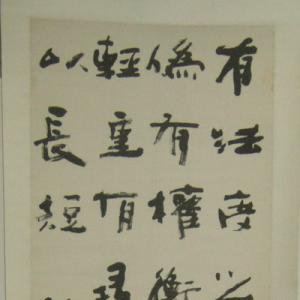 有法度之
偽有權衡
輕重有尋
以長短